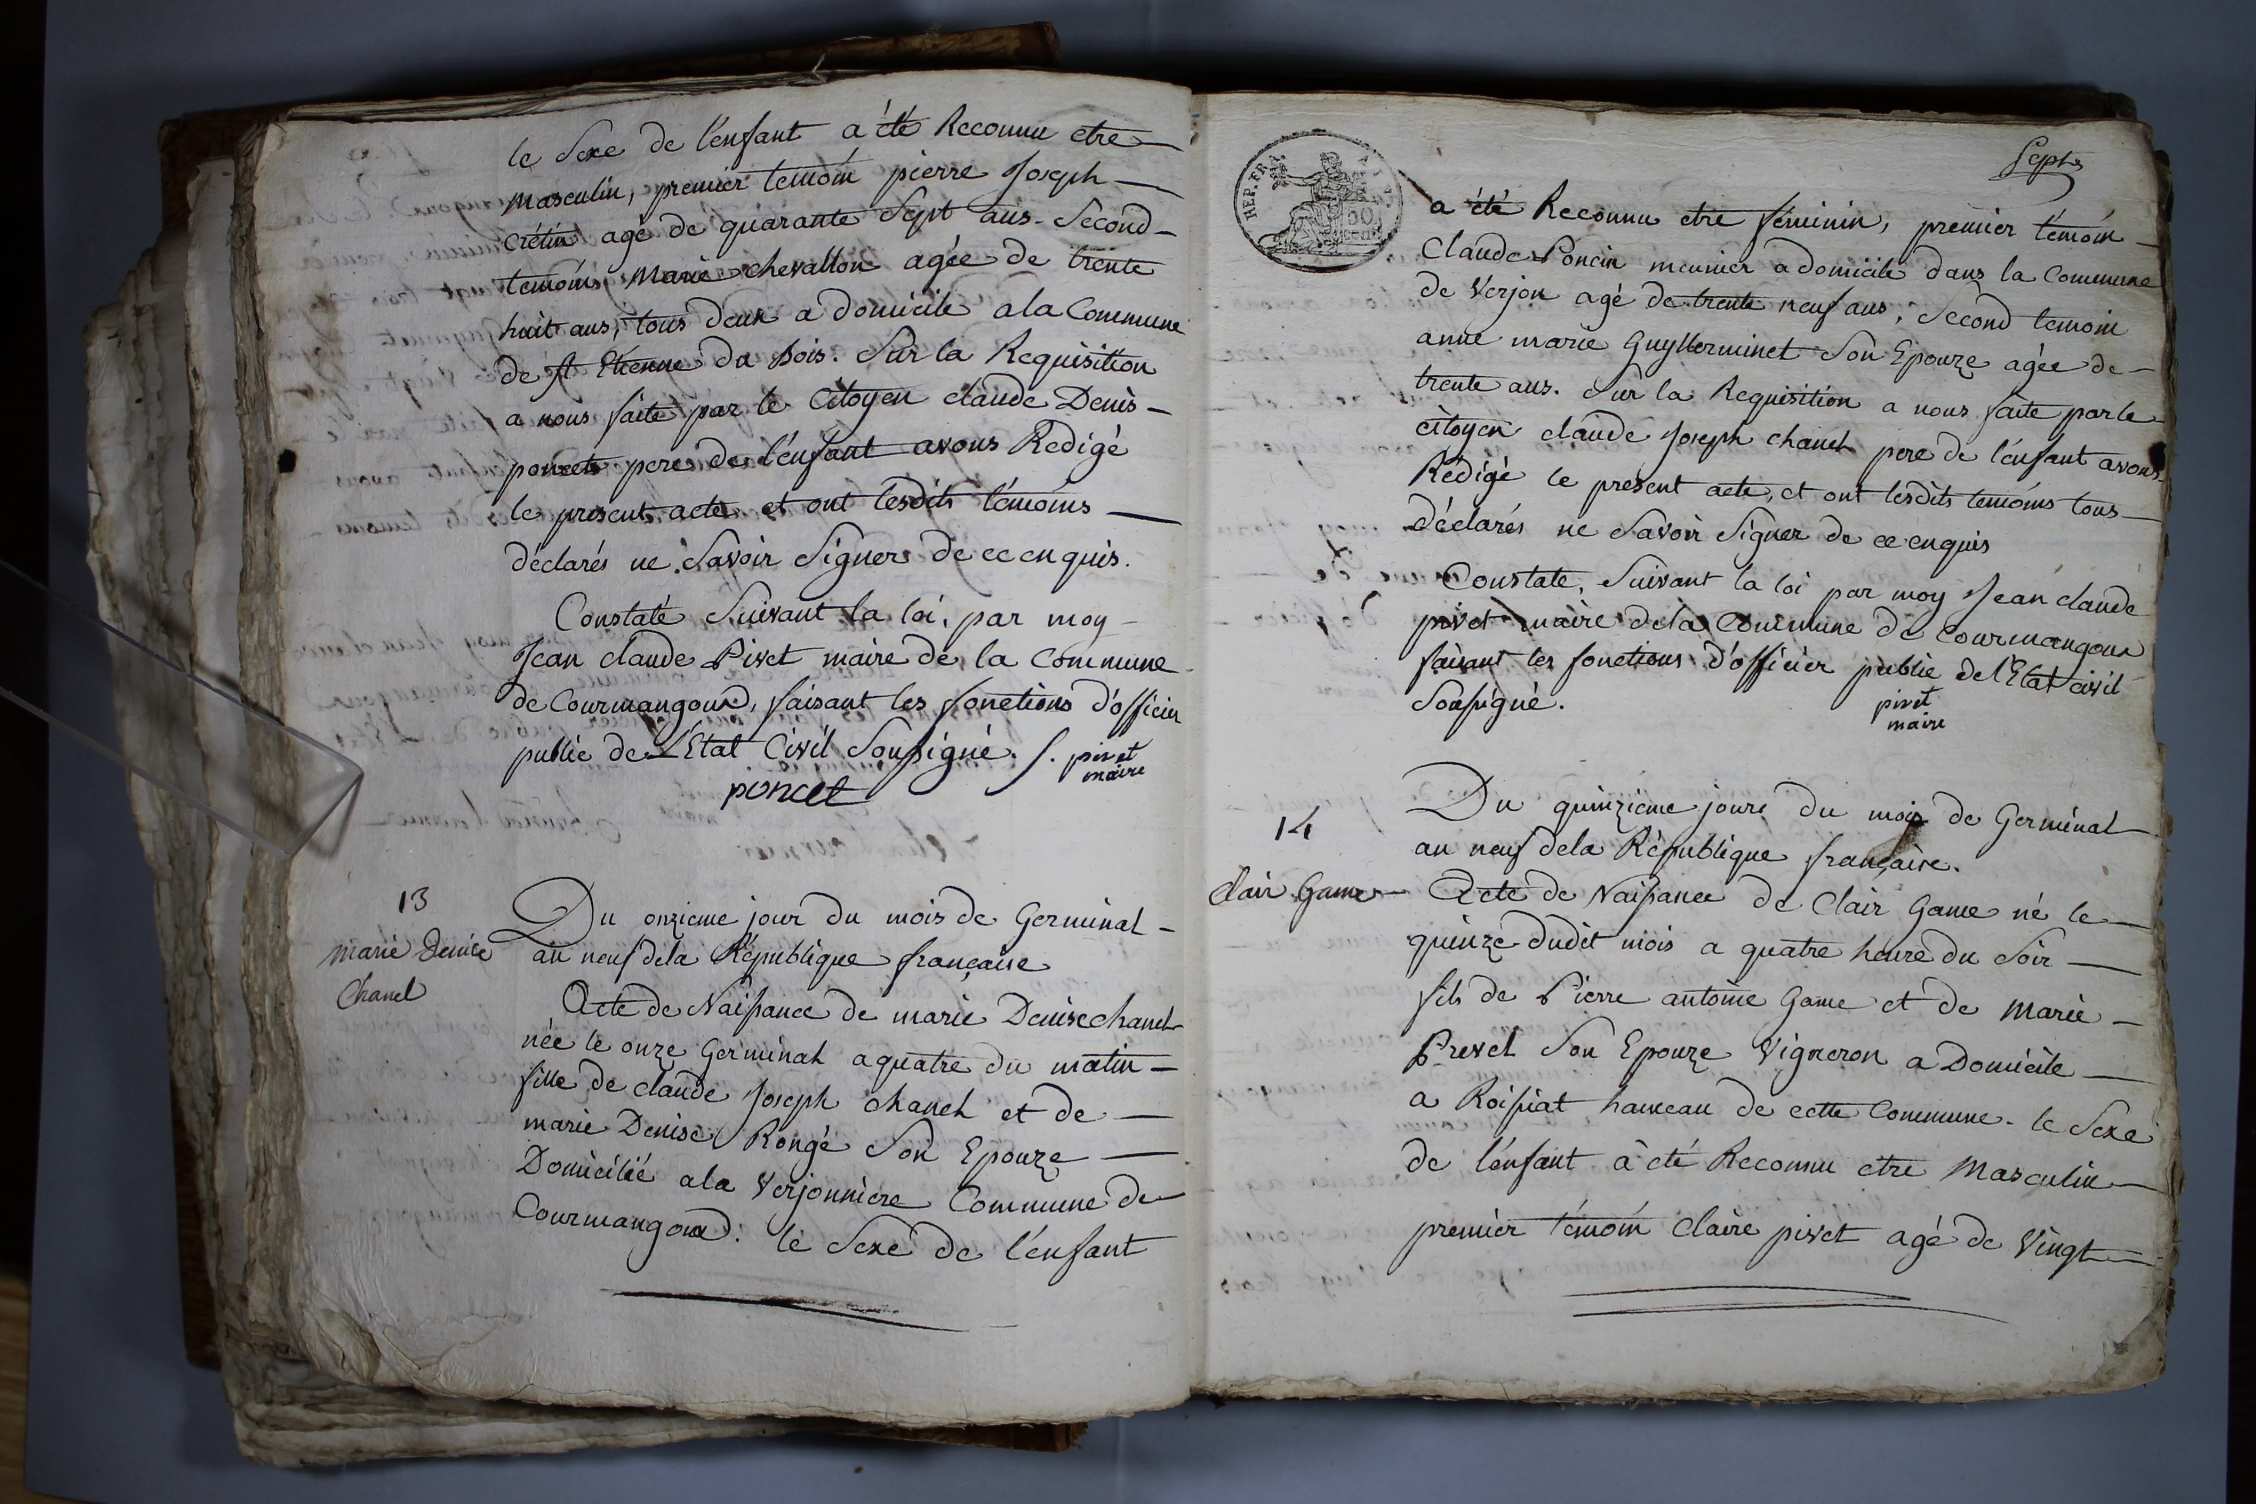 le Sexe de l'enfant a été Reconnu etre
masculin, premier temoin pierre Joseph
crétin agé de quarante Sept ans. Second
temoins Marie chevallon agée de trente
huit ans, tous deux a domicile a la Commune
de St Etienne du bois. Sur la Requisition
a nous faite par le Citoyen claude Denis
poncet pere de l'enfant avons Redigé
le present acte et ont lesdits témoins
déclarés ne Savoir Signer de ce enquis.
Constaté Suivant la loi, par moy
Jean claude Pivet maire de la Commune
de Courmangoux, faisant les fonctions d'officier
public de L'Etat Civil Soussigné. /. pivet
maire
poncet
13
marie Denise
Chanel
Du onzieme jour du mois de Germinal
an neuf de la République française
Acte de Naissance de marie Denise chanel
née le onze Germinal a quatre du matin
fille de claude Joseph chanel et de
marie Denise Rongé Son Epouze
Domicilié a la Verjonniere Commune de
Courmangoux. le Sexe de l'enfant
Sept
REP. FRA.
a été Reconnu etre féminin, premier témoin
Claude Poncin meunier a domicile dans la Commune
de Verjon agé de trente neuf ans, Second temoin
anne marie Guyllerminet Son Epouze agée de
trente ans. Sur la Requisition a nous faite par le
citoyen claude Joseph chanel pere de l'enfant avons
Rédigé le present acte, et ont lesdits temoins tous
déclarés ne Savoir Signer de ce enquis
Constaté, Suivant la loi par moy Jean claude
pivet maire de la Commune de Courmangoux
faisant les fonctions d'officier public de l'Etat civil
Soussigné.
pivet
maire
14
Clair Game
Du quinzieme jours du mois de Germinal
an neuf de la République française.
Acte de Naissance de Clair Game né le
quinze dudit mois a quatre heure du Soir
fils de Pierre antoine Game et de Marie
Prevel Son Epouze Vigneron a Domicile
a Roissiat hameau de cette Commune. le Sexe
de l'enfant à été Reconnu etre Masculin
premier témoin Claire pivet agé de Vingt